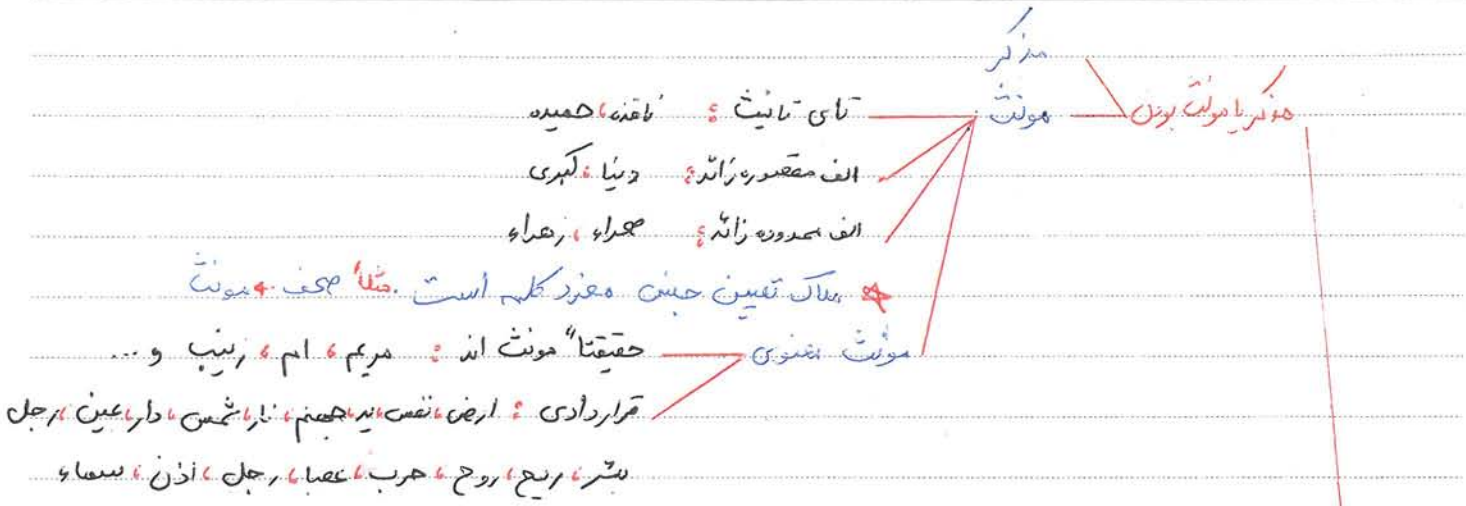 مذکر
مذکر یا مونث بودن مونث تای تانیث : نافذه، حمیده
الف مقصوره زائد : دنیا، کبری
الف ممدوده زائد : صحراء، زهراء
ملاک تعیین جنس مفرد کلمه است . مثلاً صحف ← مونث
مؤنث معنوی حقیقتاً مونث اند : مریم، ام، زینب و ...
قراردادی : ارض، نفس، ید، جهنم، نار، شمس، دار، عین، رجل
بئر، ریح، روح، حرب، عصا، رجل، أذن، سماء